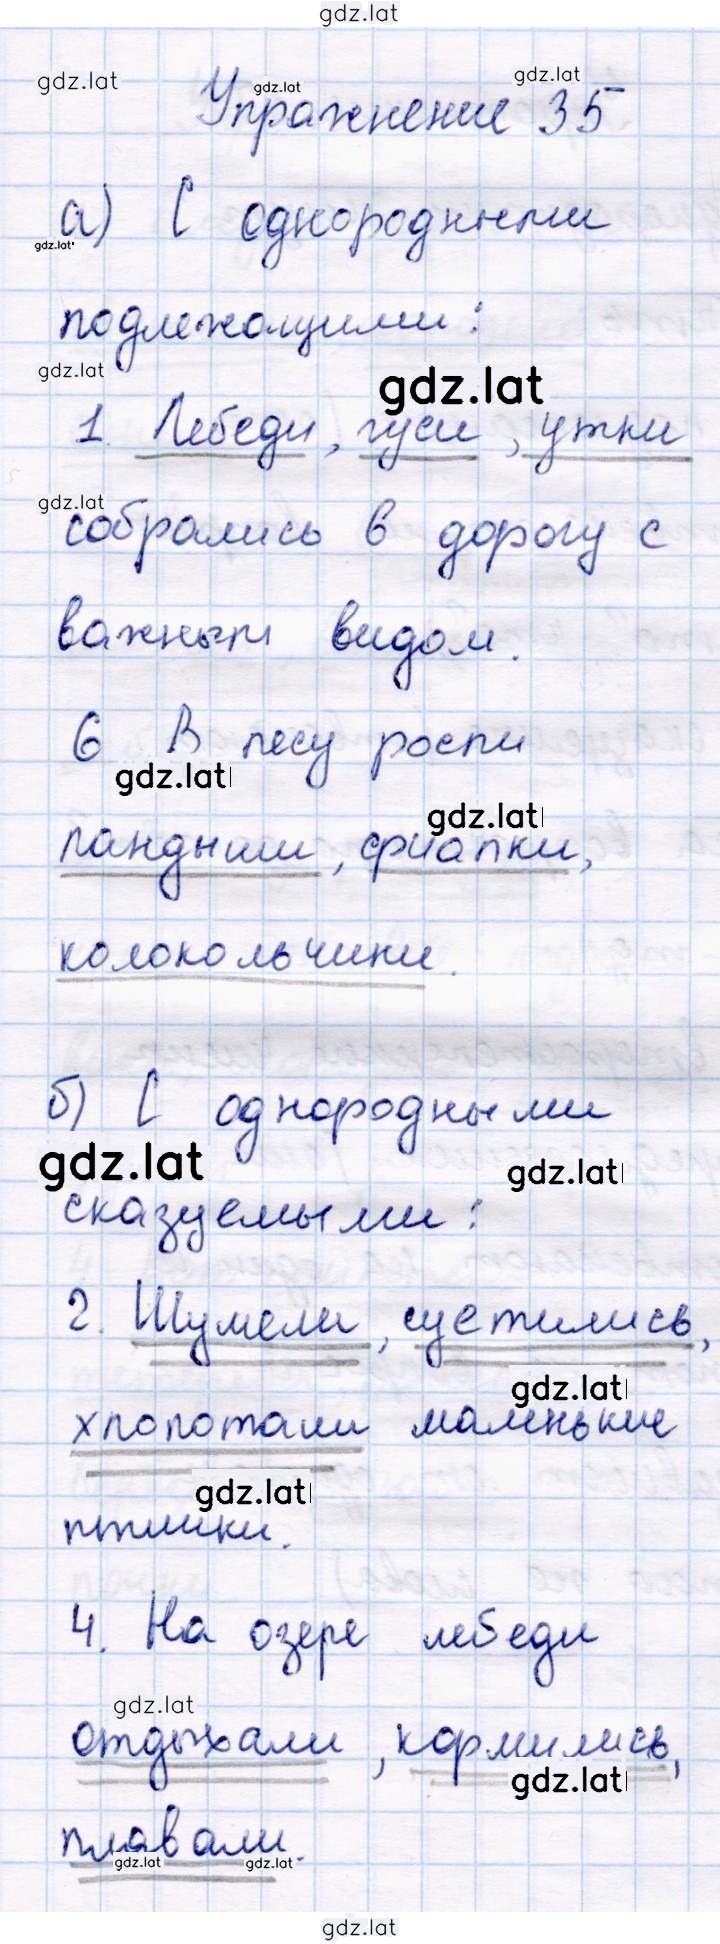 gdz.lat
gdz.lat gdz.lat gdz.lat
Упражнение 35
а) С однородными
gdz.lat
подлежащими:
gdz.lat gdz.lat
1. Лебеди, гуси, утки
gdz.lat
собрались в дорогу с
важным видом.
6 В лесу росли
gdz.lat gdz.lat
ландыши, фиалки,
колокольчики.
б) С однородными
gdz.lat gdz.lat
сказуемыми:
2. Шумели, суетились,
gdz.lat
хлопотали маленькие
gdz.lat
птички.
4. На озере лебеди
gdz.lat
отдыхали, кормились,
gdz.lat
плавали.
gdz.lat gdz.lat
gdz.lat